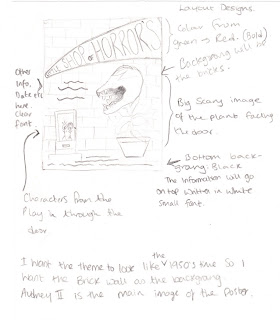 Layout Designs.
Colour from
green → Red. (Bold)
SHOP OF HORRORS
Backgrong will
the bricks.
Other
Info.
Date etc
here.
Clear
font
Big Scary image
of the plant facing
the door.
Bottom back-
grong: Black
The Information will go
on top written in white
Small font.
Characters from the
Play in through the
door
I want the theme to look like the 1950's time so I
want the Brick wall as the backgrong
Audrey II is the main image of the Poster.